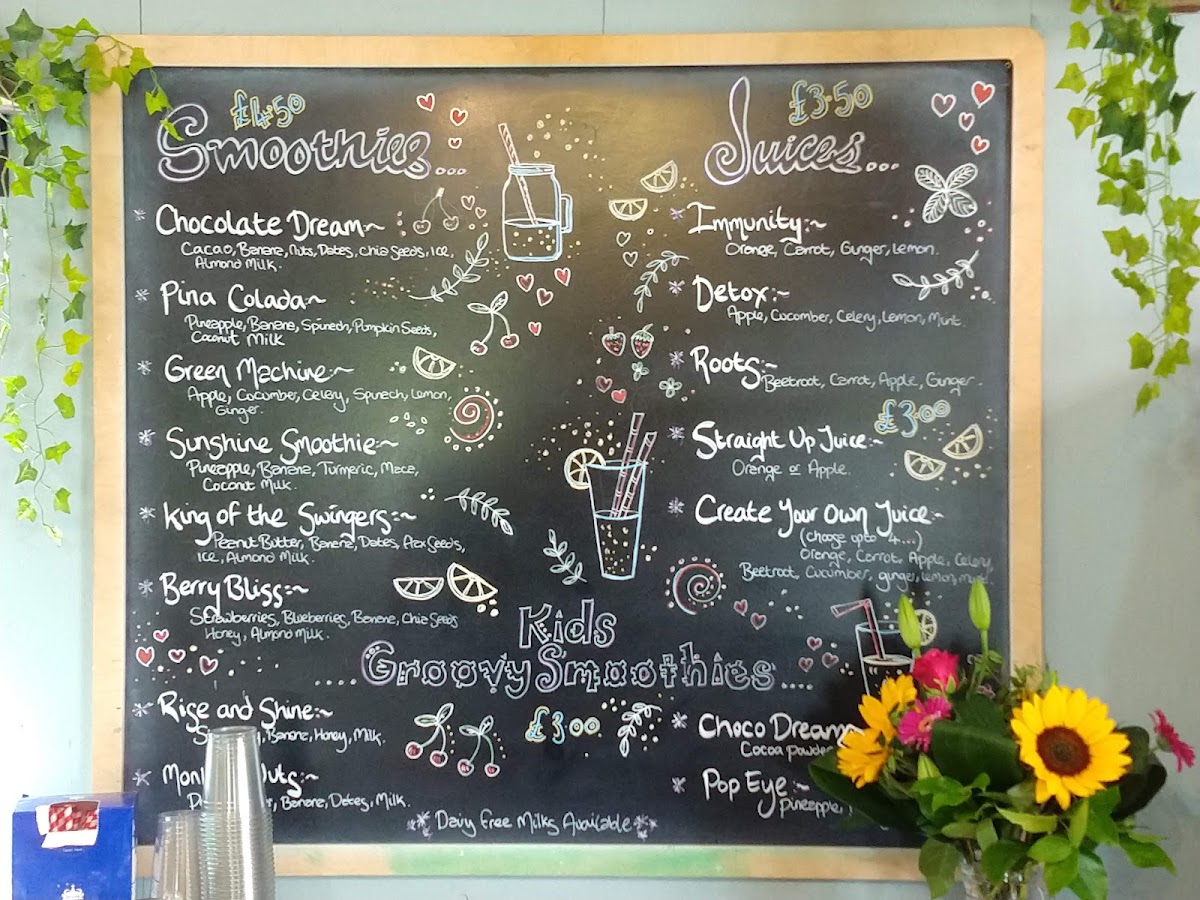 £4.50
Smoothies...
* Chocolate Dream~
Cacao, Banana, Nuts, Dates, Chia Seeds, Ice,
Almond Milk.
* Pina Colada~
Pineapple, Banana, Spinach, Pumpkin Seeds,
Coconut Milk
* Green Machine:~
Apple, Cucumber, Celery, Spinach, Lemon,
Ginger.
* Sunshine Smoothie:~
Pineapple, Banana, Turmeric, Maca,
Coconut Milk.
* King of the Swingers:~
Peanut Butter, Banana, Dates, Flax Seeds,
Ice, Almond Milk.
* Berry Bliss:~
Strawberries, Blueberries, Banana, Chia Seeds
Honey, Almond Milk.
£3.50
Juices...
* Immunity:~
Orange, Carrot, Ginger, Lemon.
* Detox:~
Apple, Cucumber, Celery, Lemon, Mint.
* Roots:~
Beetroot, Carrot, Apple, Ginger.
£3.00
* Straight Up Juice:~
Orange or Apple.
* Create Your Own Juice:~
(Choose upto 4...)
Orange, Carrot, Apple, Celery,
Beetroot, Cucumber, ginger, lemon, mint.
Kids
.....Groovy Smoothies.....
£3.00
* Rise and Shine:~
Banana, Honey, Milk.
* Nuts:~
Banana, Dates, Milk.
* Choco Dream
Cocoa powder
* Pop Eye:~
Pineapple,
* Dairy Free Milks Available *